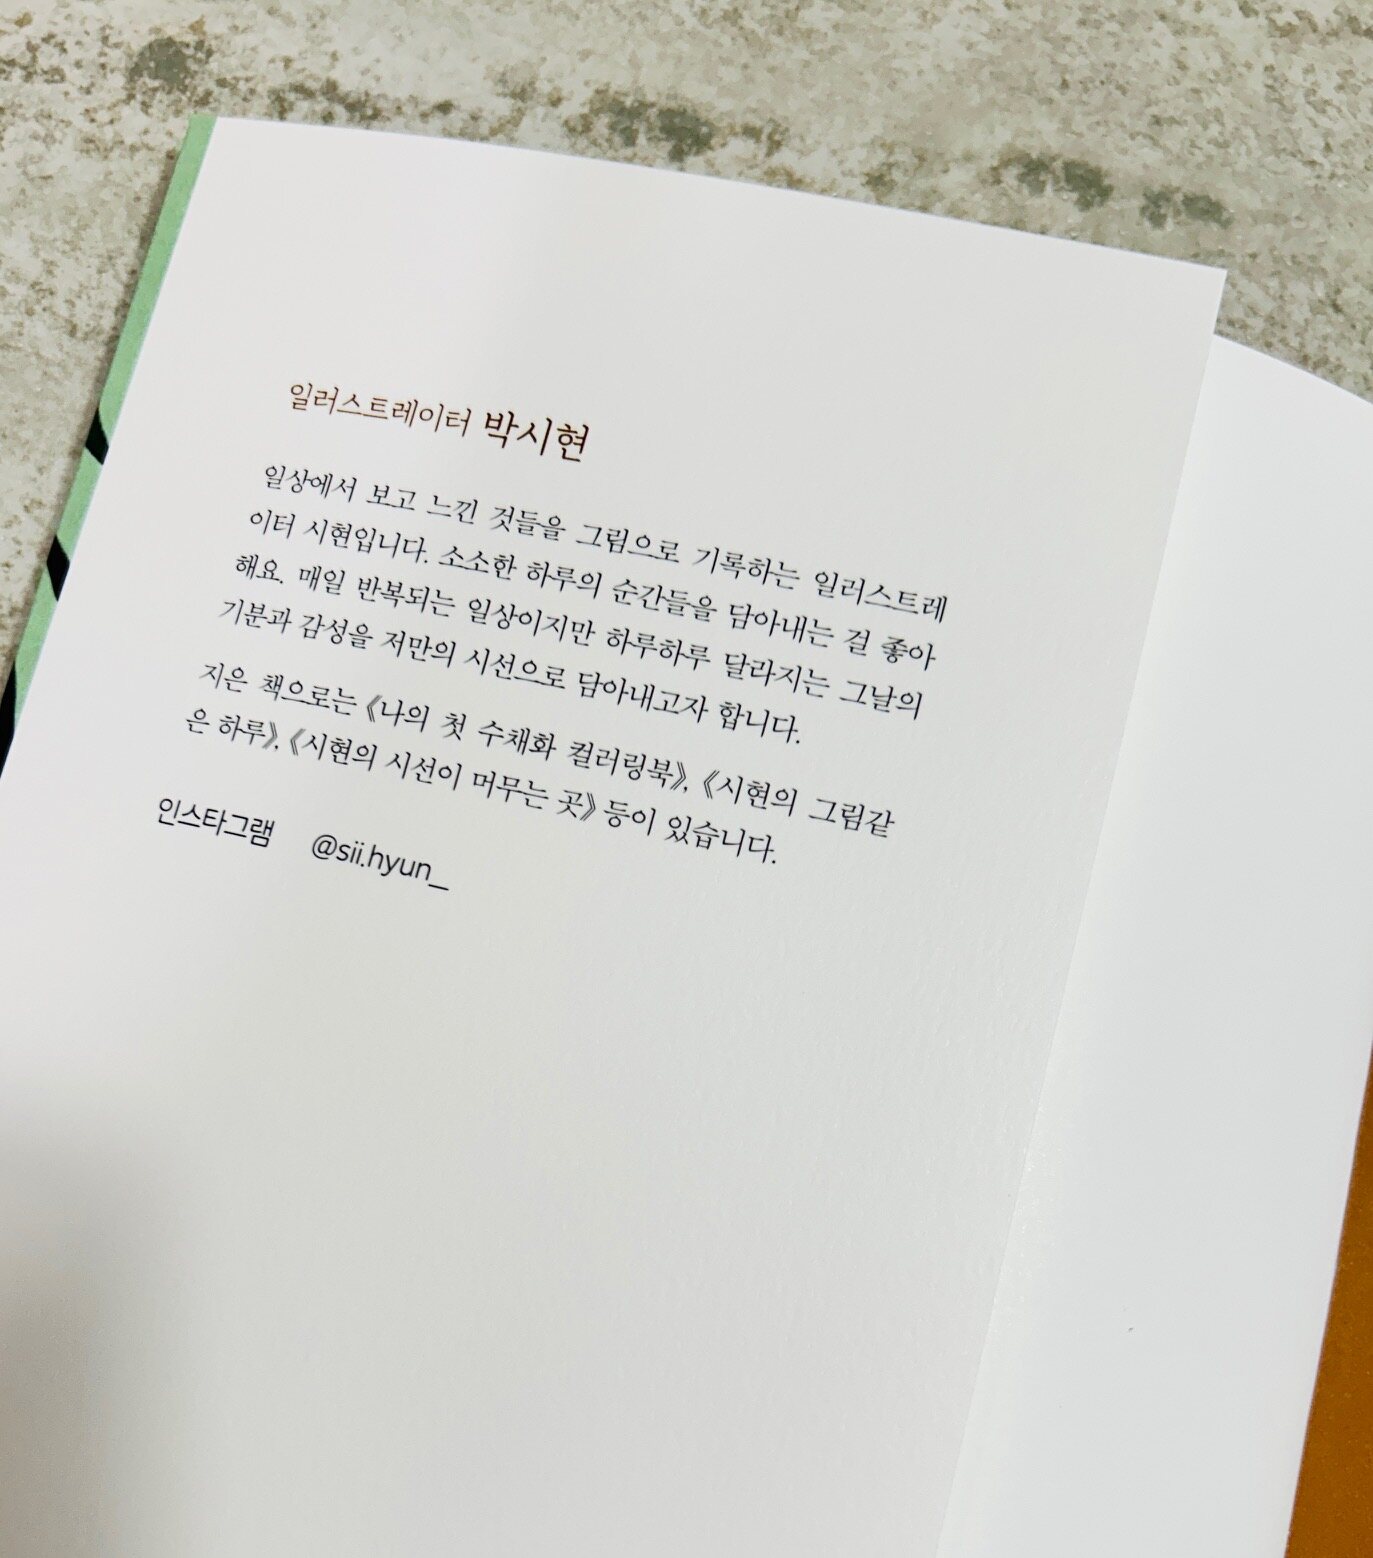 일러스트레이터 박시현
일상에서 보고 느낀 것들을 그림으로 기록하는 일러스트레
이터 시현입니다. 소소한 하루의 순간들을 담아내는 걸 좋아
해요. 매일 반복되는 일상이지만 하루하루 달라지는 그날의
기분과 감성을 저만의 시선으로 담아내고자 합니다.
지은 책으로는 《나의 첫 수채화 컬러링북》, 《시현의 그림같
은 하루》, 《시현의 시선이 머무는 곳》 등이 있습니다.
인스타그램 @sii.hyun_